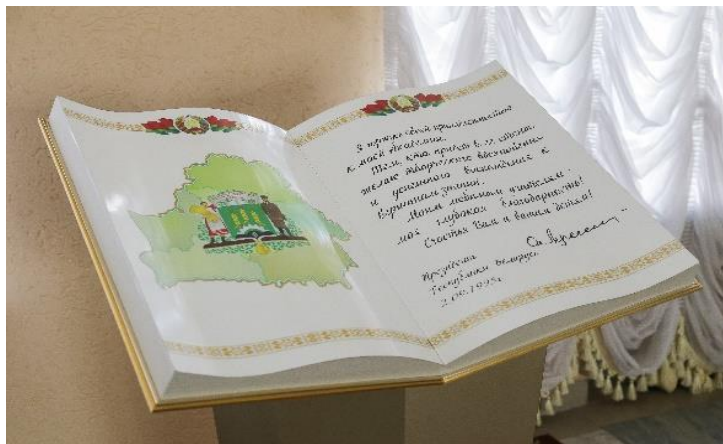 Я горжусь своей принадлежностью
к моей Академии.
Тем, кто пришёл в её стены
желаю творческого восхождения
и успешного восхождения к
вершинам знаний.
Моим любимым учителям –
моя глубокая благодарность!
Счастья Вам и вашим детям!
Президент
Республики Беларусь
2.09.1995г.